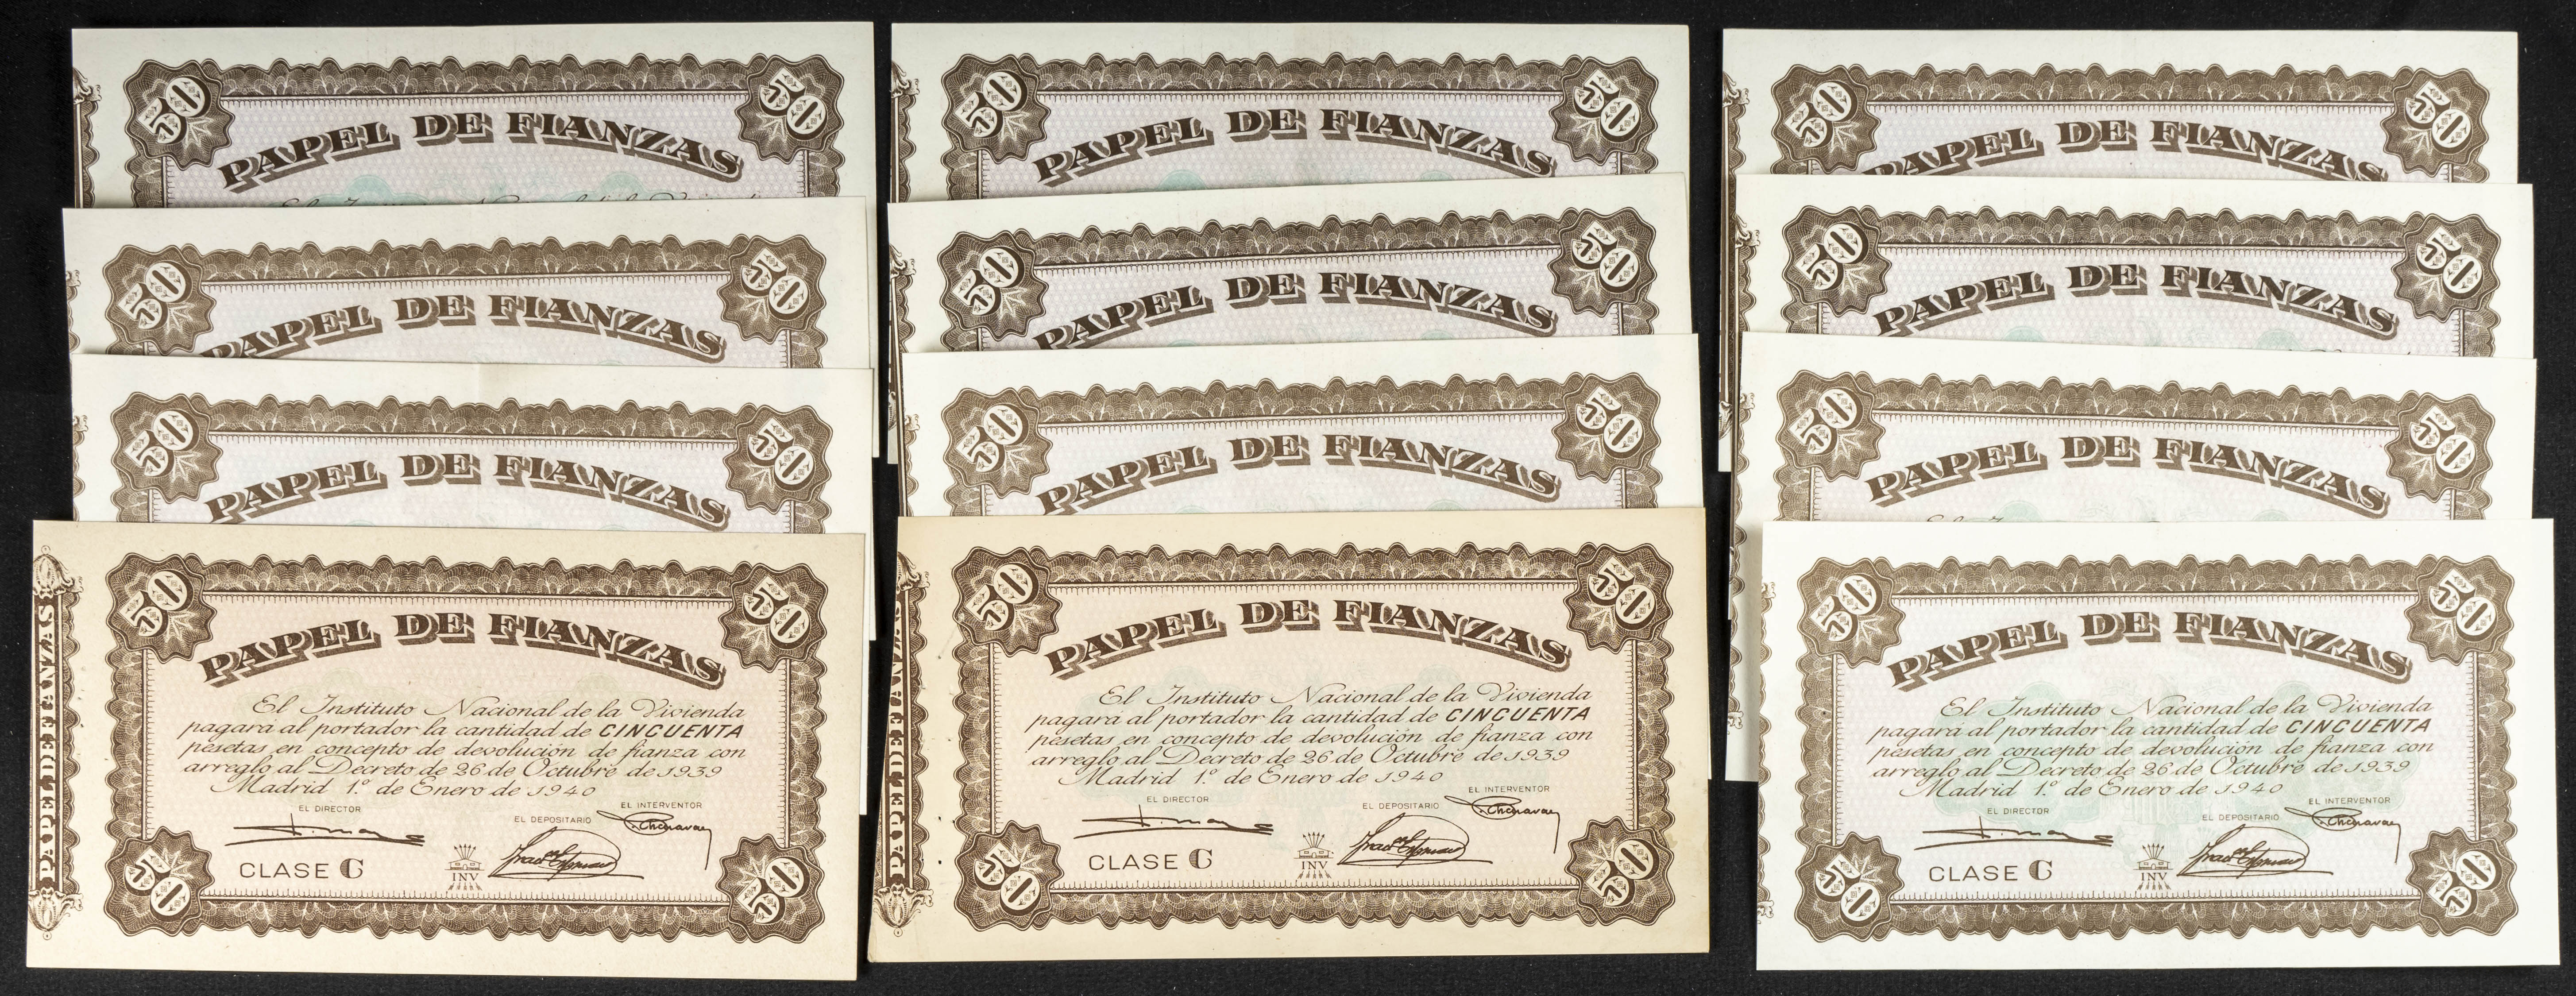 50 50
PAPEL DE FIANZAS
50 50
PAPEL DE FIANZAS
50 50
PAPEL DE FIANZAS
PAPEL DE FIANZAS
50 50
PAPEL DE FIANZAS
El Instituto Nacional de la Vivienda
pagará al portador la cantidad de CINCUENTA
pesetas en concepto de devolución de fianza con
arreglo al Decreto de 26 de Octubre de 1939
Madrid 1.º de Enero de 1940
EL DIRECTOR
EL DEPOSITARIO
EL INTERVENTOR
CLASE C
INV
50 50
50 50
PAPEL DE FIANZAS
50 50
PAPEL DE FIANZAS
50 50
PAPEL DE FIANZAS
PAPEL DE FIANZAS
50 50
PAPEL DE FIANZAS
El Instituto Nacional de la Vivienda
pagará al portador la cantidad de CINCUENTA
pesetas en concepto de devolución de fianza con
arreglo al Decreto de 26 de Octubre de 1939
Madrid 1.º de Enero de 1940
EL DIRECTOR
EL DEPOSITARIO
EL INTERVENTOR
CLASE C
INV
50 50
50 50
PAPEL DE FIANZAS
50 50
PAPEL DE FIANZAS
50 50
PAPEL DE FIANZAS
50 50
PAPEL DE FIANZAS
El Instituto Nacional de la Vivienda
pagará al portador la cantidad de CINCUENTA
pesetas en concepto de devolución de fianza con
arreglo al Decreto de 26 de Octubre de 1939
Madrid 1.º de Enero de 1940
EL DIRECTOR
EL DEPOSITARIO
EL INTERVENTOR
CLASE C
INV
50 50